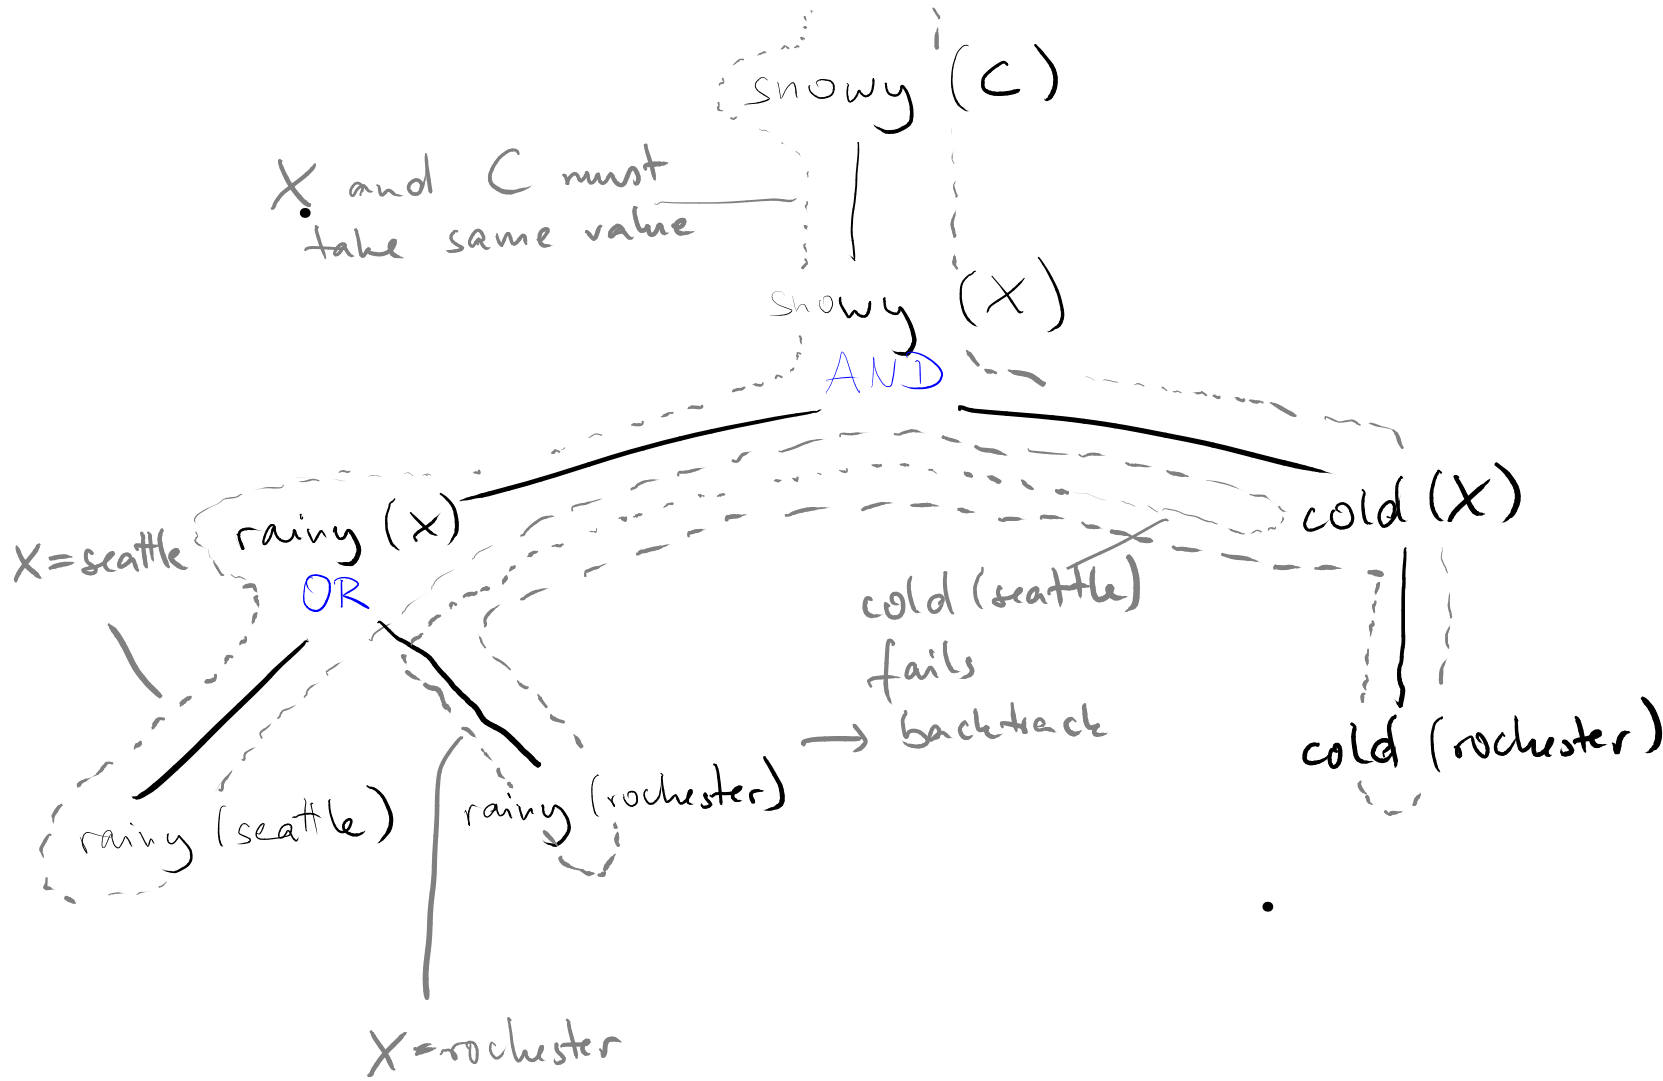 snowy (C)
X and C must
take same value
snowy (X)
AND
rainy (X)
cold (X)
X=seattle
OR
cold (seattle)
fails
→ backtrack
cold (rochester)
rainy (seattle)
rainy (rochester)
X=rochester